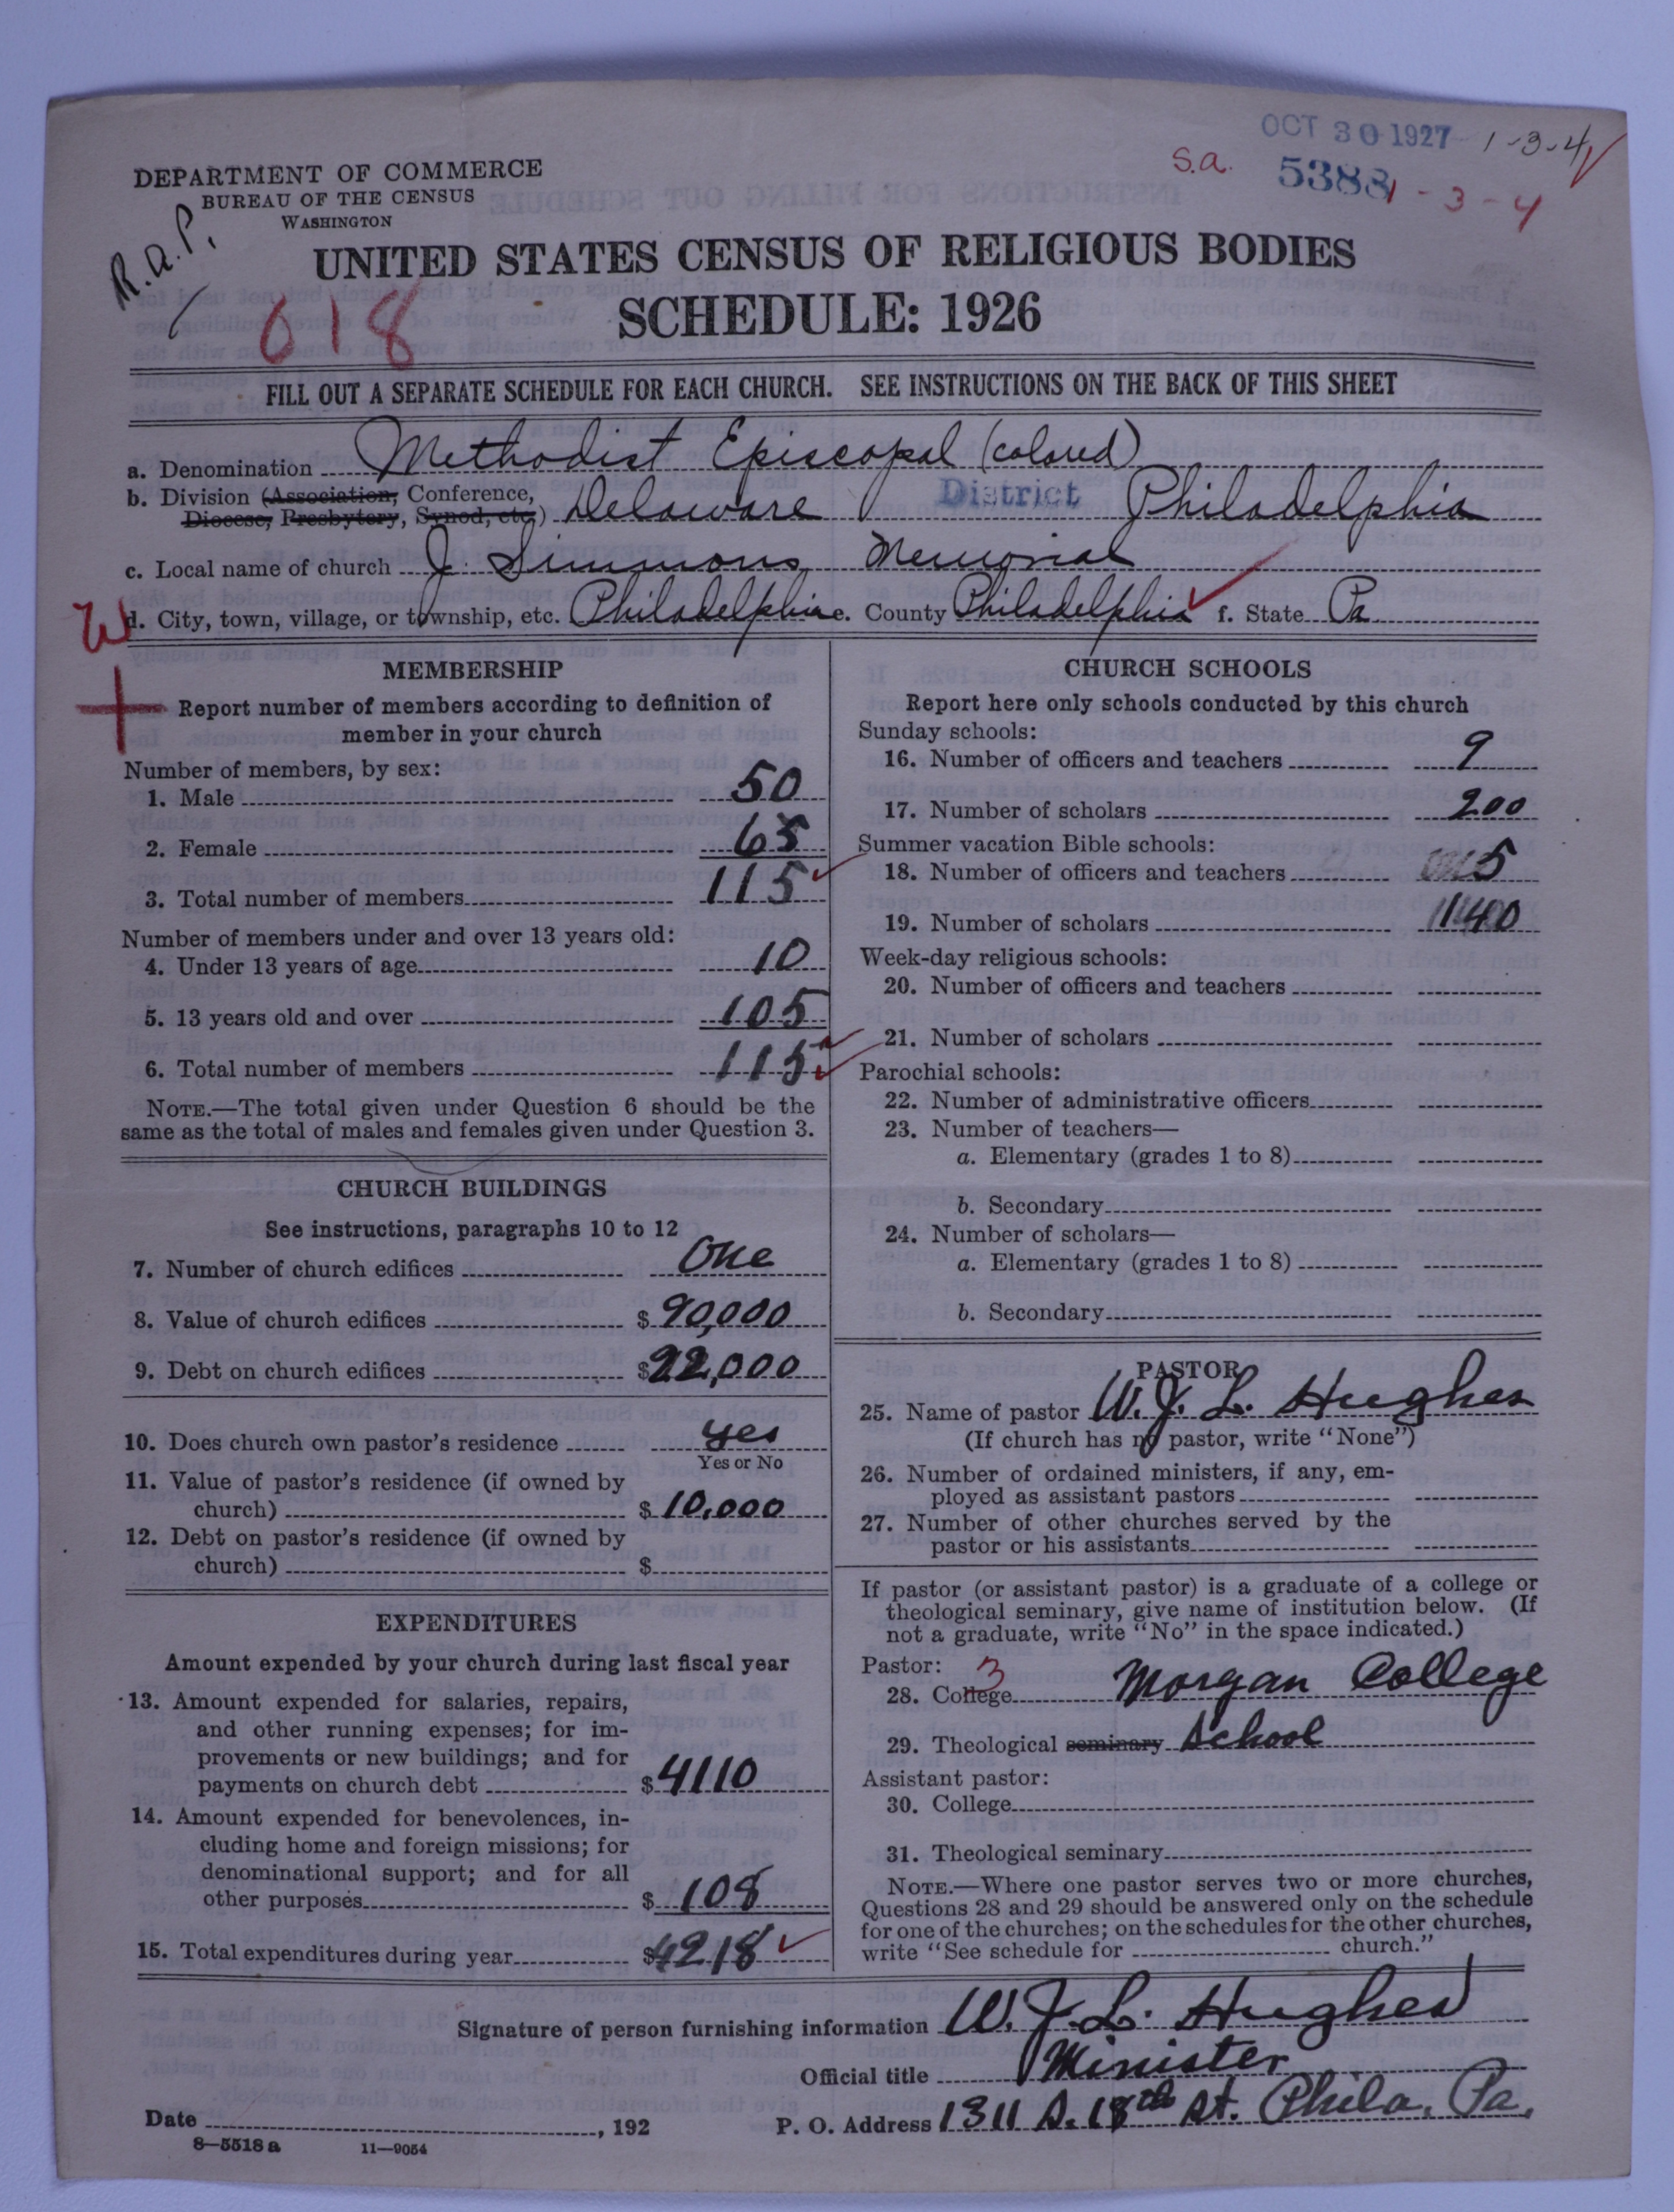 OCT 30 1927 1-3-4
S.a. 5388 1-3-4
DEPARTMENT OF COMMERCE
BUREAU OF THE CENSUS
WASHINGTON
R.a.P.
UNITED STATES CENSUS OF RELIGIOUS BODIES
618 SCHEDULE: 1926
FILL OUT A SEPARATE SCHEDULE FOR EACH CHURCH. SEE INSTRUCTIONS ON THE BACK OF THIS SHEET
a. Denomination Methodist Episcopal (colored)
b. Division (Association, Conference,
Diocese, Presbytery, Synod, etc.) Delaware District Philadelphia
c. Local name of church J. Simmons Memorial
d. City, town, village, or township, etc. Philadelphia e. County Philadelphia f. State Pa
MEMBERSHIP
Report number of members according to definition of
member in your church
Number of members, by sex:
1. Male 50
2. Female 65
3. Total number of members 115
Number of members under and over 13 years old:
4. Under 13 years of age 10
5. 13 years old and over 105
6. Total number of members 115
NOTE.—The total given under Question 6 should be the
same as the total of males and females given under Question 3.
CHURCH BUILDINGS
See instructions, paragraphs 10 to 12
7. Number of church edifices One
8. Value of church edifices $ 90,000
9. Debt on church edifices $ 22,000
10. Does church own pastor's residence yes
Yes or No
11. Value of pastor's residence (if owned by
church) $ 10,000
12. Debt on pastor's residence (if owned by
church) $
EXPENDITURES
Amount expended by your church during last fiscal year
13. Amount expended for salaries, repairs,
and other running expenses; for im-
provements or new buildings; and for
payments on church debt $ 4110
14. Amount expended for benevolences, in-
cluding home and foreign missions; for
denominational support; and for all
other purposes $ 108
15. Total expenditures during year $ 4218
CHURCH SCHOOLS
Report here only schools conducted by this church
Sunday schools:
16. Number of officers and teachers 9
17. Number of scholars 200
Summer vacation Bible schools:
18. Number of officers and teachers 5
19. Number of scholars
Week-day religious schools:
20. Number of officers and teachers
21. Number of scholars
Parochial schools:
22. Number of administrative officers
23. Number of teachers—
a. Elementary (grades 1 to 8)
b. Secondary
24. Number of scholars—
a. Elementary (grades 1 to 8)
b. Secondary
PASTOR
25. Name of pastor W. J. L. Hughes
(If church has no pastor, write "None")
26. Number of ordained ministers, if any, em-
ployed as assistant pastors
27. Number of other churches served by the
pastor or his assistants
If pastor (or assistant pastor) is a graduate of a college or
theological seminary, give name of institution below. (If
not a graduate, write "No" in the space indicated.)
Pastor: 3
28. College Morgan College
29. Theological seminary School
Assistant pastor:
30. College
31. Theological seminary
NOTE.—Where one pastor serves two or more churches,
Questions 28 and 29 should be answered only on the schedule
for one of the churches; on the schedules for the other churches,
write "See schedule for church."
Signature of person furnishing information W. J. L. Hughes
Official title Minister
Date , 192 P. O. Address 1311 S. 18th St. Phila. Pa.
8—5518 a 11—9054